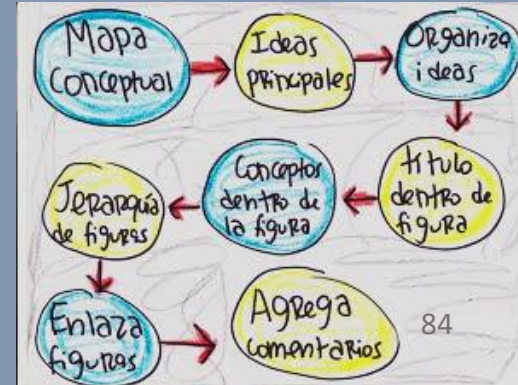 Mapa
Conceptual
Ideas
Principales
Organiza
ideas
título
dentro de
figura
Conceptos
dentro de
la figura
Jerarquía
de figuras
Enlaza
figuras
Agrega
comentarios
84